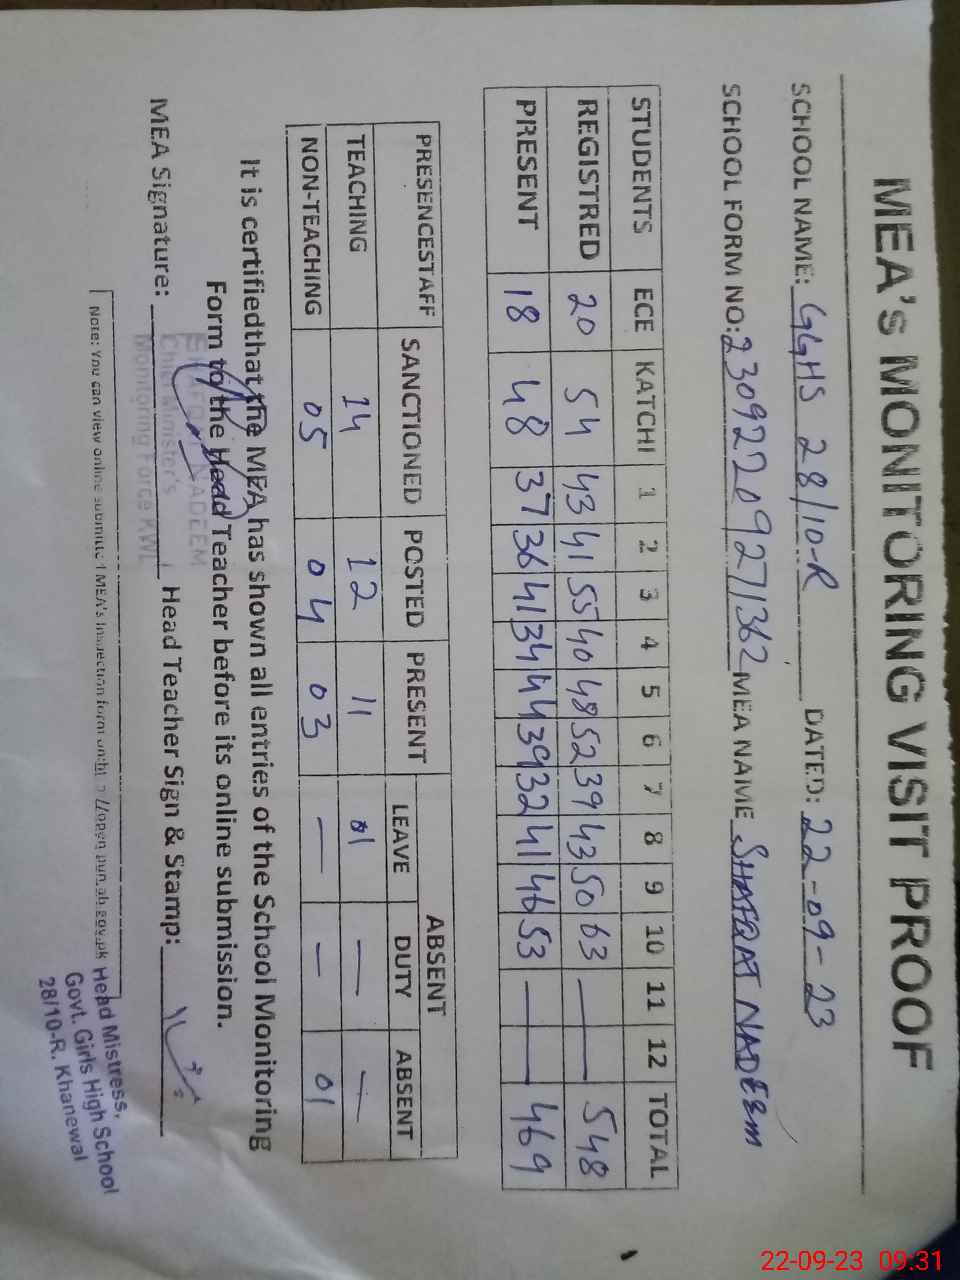 MEA's MONITORING VISIT PROOF
SCHOOL NAME: GGHS 28/10-R DATED: 22-09-23
SCHOOL FORM NO: 23092209271362 MEA NAME SHAFQAT NADEEM
STUDENTS ECE KATCHI 1 2 3 4 5 6 7 8 9 10 11 12 TOTAL
REGISTRED 20 54 43 41 55 40 48 52 39 43 50 63 — — 548
PRESENT 18 48 37 36 41 34 44 39 32 41 46 53 — — 469
PRESENCESTAFF SANCTIONED POSTED PRESENT ABSENT
LEAVE DUTY ABSENT
TEACHING 14 12 11 01 — —
NON-TEACHING 05 04 03 — — 01
It is certifiedthat the MEA has shown all entries of the School Monitoring
Form to the Head Teacher before its online submission.
MEA Signature: Head Teacher Sign & Stamp:
NADEEM
Chief Minister's
Monitoring Force KWL
Note: You can view online submitted MEA's Inspection form
Head Mistress,
Govt. Girls High School
28/10-R. Khanewal
22-09-23 09:31